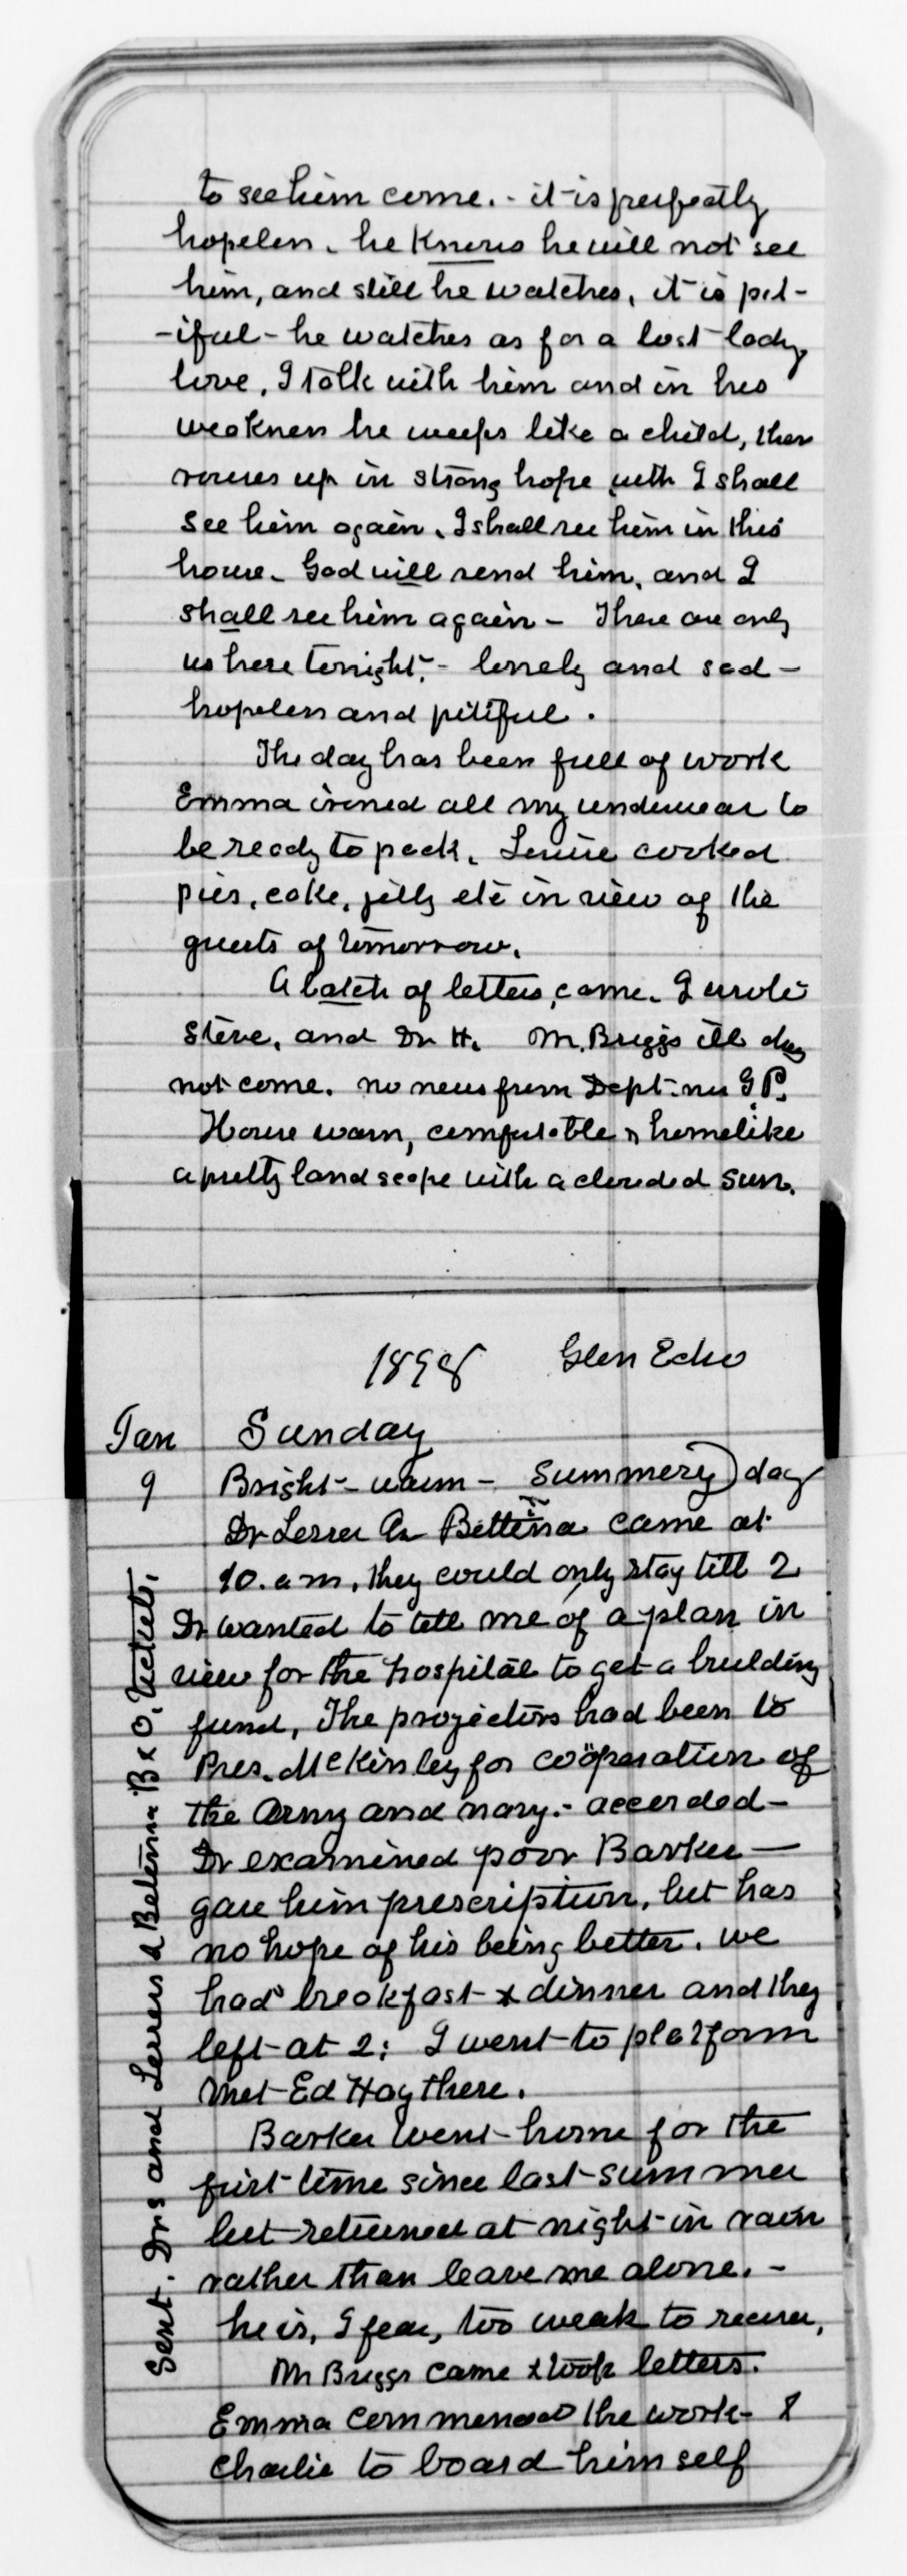 to see him come. - it is perfectly
hopeless - he knows he will not see
him, and still he watches, it is pit-
-iful - he watches as for a lost lady
love. I talk with him and in his
weakness he weeps like a child, then
rouses up in strong hope with I shall
see him again, I shall see him in this
house. God will send him, and I
shall see him again - There are only
us here tonight, - lonely and sad -
hopeless and pitiful.
The day has been full of work
Emma ironed all my underwear to
be ready to pack. Louise cooked
pies, cake, jelly etc in view of the
guests of tomorrow.
A batch of letters, came. I wrote
Steve, and Dr H. Mr. Briggs ill
not come. no news from Dept. nor G.P.
House warm, comfortable & homelike
a pretty landscape with a clouded sun.
1898 Glen Echo
Jan Sunday
9 Bright - warm - summery day
Dr Lesser & Bettina came at
10. a m, they could only stay till 2
Dr wanted to tell me of a plan in
view for the hospital to get a building
fund, The projectors had been to
Pres. McKinley for coöperation of
the Army and navy - accorded -
Dr examined poor Barker —
gave him prescription, but has
no hope of his being better. we
had breakfast & dinner and they
left at 2: I went to platform
met Ed Hay there.
Barker went home for the
first time since last summer
but returned at night in rain
rather than leave me alone. -
he is, I fear, too weak to recover,
Mr Briggs came & took letters.
Emma commenced the work - &
Charlie to board himself
Sent. Drs and Lesser & Bettina B & O. tickets.